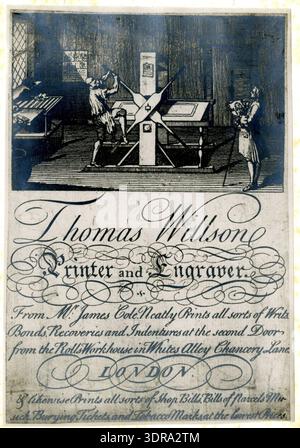 Thomas Willson
Printer and Engraver.
From Mr. James Cole Neatly Prints all sorts of Writs
Bonds, Recoveries and Indentures at the second Door
from the Rolls Workhouse in Whites Alley Chancery Lane
LONDON
& likewise Prints all sorts of Shop Bills, Bills of Parcels Mu-
sick Burying Tickets and Tobacco Marks at the lowest Prices.
alamy
Image ID: 3DRA2TM
www.alamy.com